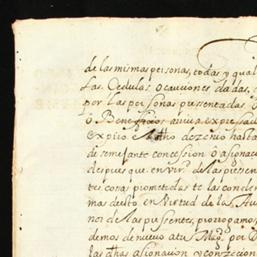 de las mismas personas, todas y qual
las Cedulas o cauciones dadas,
por las personas presentadas
o Beneficios arriva expresad
expiro dho dezenio hasta
di semejante concesion o asignac
despues que en virtud de las presen
tes cosas prometidas te las conden
mas desto en Virtud de la
nos de las presentes, prorrogamos,
demos de nuevo a tu Magd por
las dhas asignacion y concession